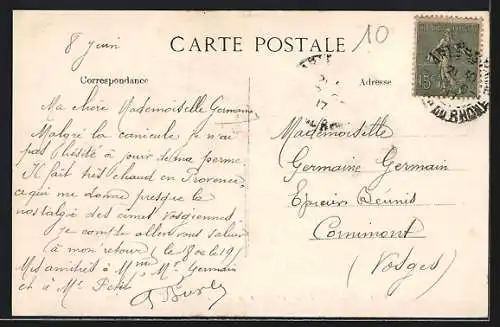 8 Juin
10
CARTE POSTALE
Correspondance
Adresse
15c
DU RHONE
Ma chère Mademoiselle Germaine
Malgré la canicule je n'ai
pas hésité à jouir de ma perme.
Il fait très chaud en Provence
ce qui me donne presque la
nostalgie des cimes Vosgiennes
je compte aller vous saluer
à mon retour (le 18 ou le 19)
Mes amitiés à Mme, Mr Germain
et à Mr Petit
Mademoiselle
Germaine Germain
Epiciers Réunis
Cornimont
(Vosges)